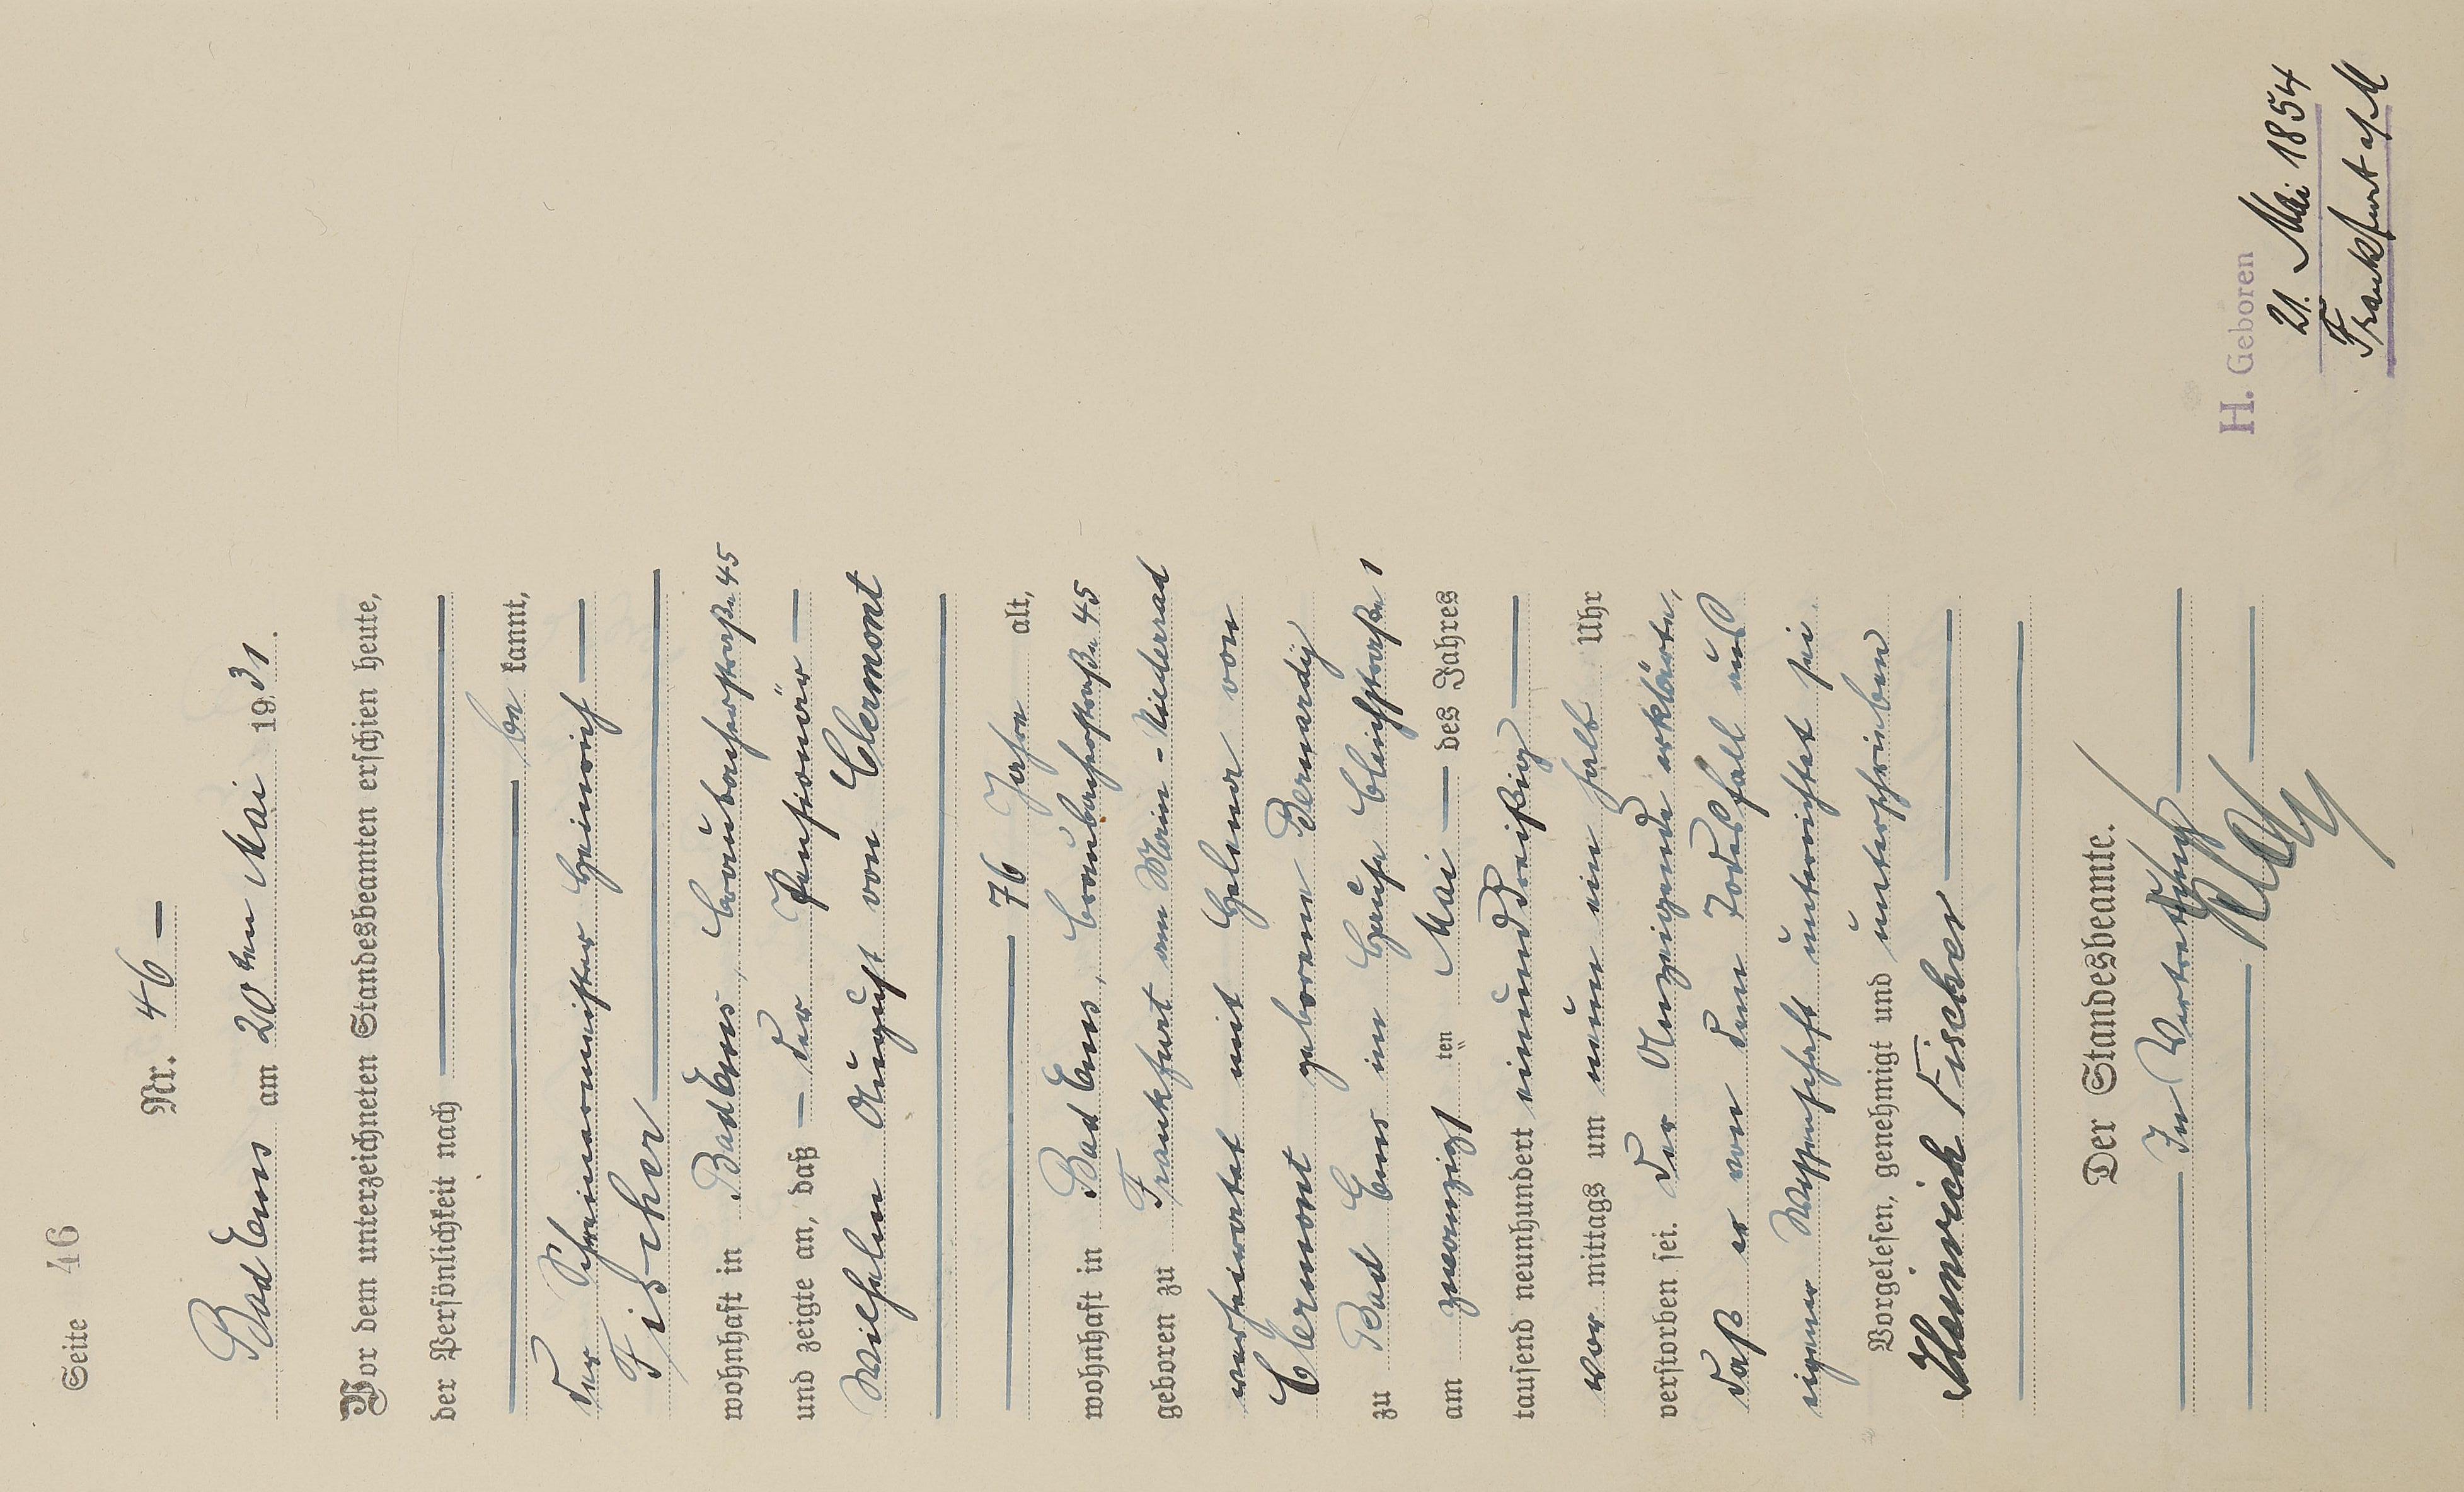 Seite 46
Nr. 46
Bad Ems am 20ten Mai 1931.
Vor dem unterzeichneten Standesbeamten erschien heute,
der Persönlichkeit nach
be kannt,
der Schreinermeister Heinrich
Fischer
wohnhaft in Bad Ems, Braubacherstraße 45
und zeigte an, daß – der Pensionär –
Wilhelm August von Clermont
76 Jahre alt,
wohnhaft in Bad Ems, Braubacherstraße 45
geboren zu Frankfurt am Main-Niederrad
verheiratet mit Helene von
Clermont geborene Bernardy
zu Bad Ems im Hause Bleichstraße 1
am zwanzigsten Mai des Jahres
tausend neunhundert einunddreißig
vor mittags um neun ein halb Uhr
verstorben sei. Der Anzeigende erklärte,
daß er von dem Todesfall aus
eigener Wissenschaft unterrichtet sei.
Vorgelesen, genehmigt und unterschrieben
Heinrich Fischer
Der Standesbeamte.
In Vertretung
H. Geboren
21. Mai 1854
Frankfurt a/M